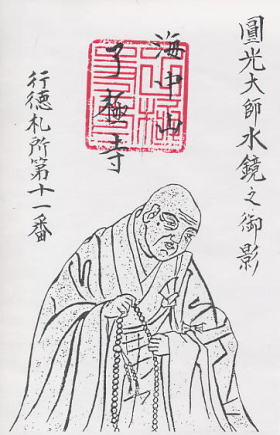 圓光大師水鏡之御影
海中山
了極寺
行德札所第十一番